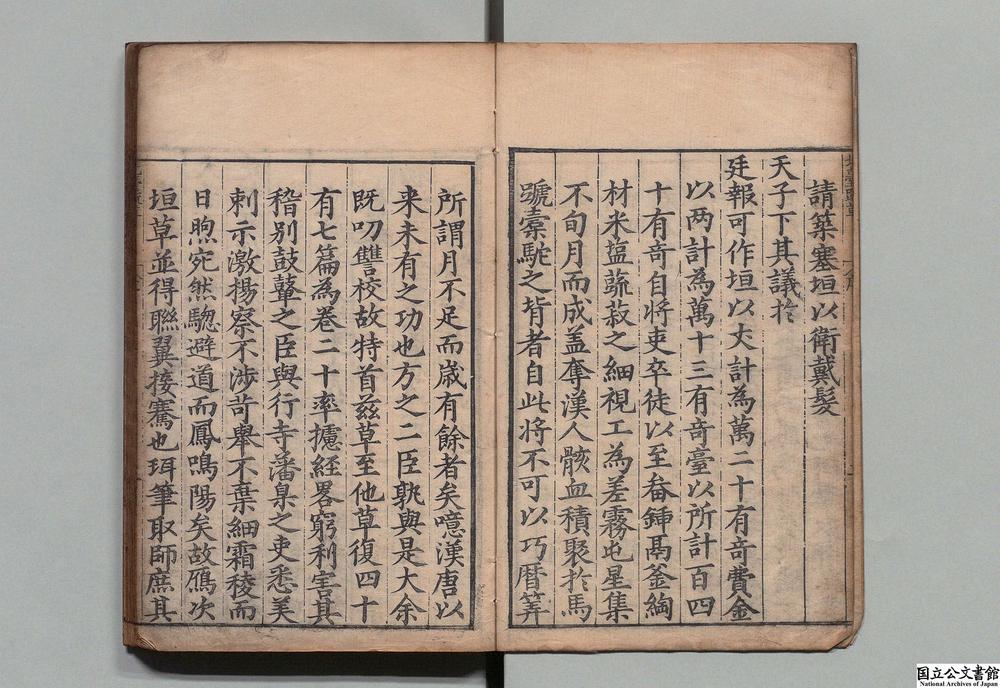 請築塞垣以衛戴髮
天子下其議於
廷報可作垣以丈計為萬二十有奇費金
以两計為萬十三有奇臺以所計百四
十有奇自將吏卒徒以至畚鍤鬲釜綯
材米塩蔬菽之細視工為差霧屯星集
不旬月而成盖奪漢人骸血積聚於馬
號橐駝之背者自此将不可以巧暦筭
所謂月不足而歳有餘者矣噫漢唐以
来未有之功也方之二臣孰與是大余
既叨讐校故特首茲草至他草復四十
有七篇為卷二十率攄経畧窮利害其
稽别鼓鼙之臣與行寺藩臬之吏悉美
刺示激揚察不涉苛舉不棄細霜稜而
日煦宛然驄避道而鳳鳴陽矣故鴈次
垣草並得聯翼接騫也珥筆取師庶其
国立公文書館
National Archives of Japan